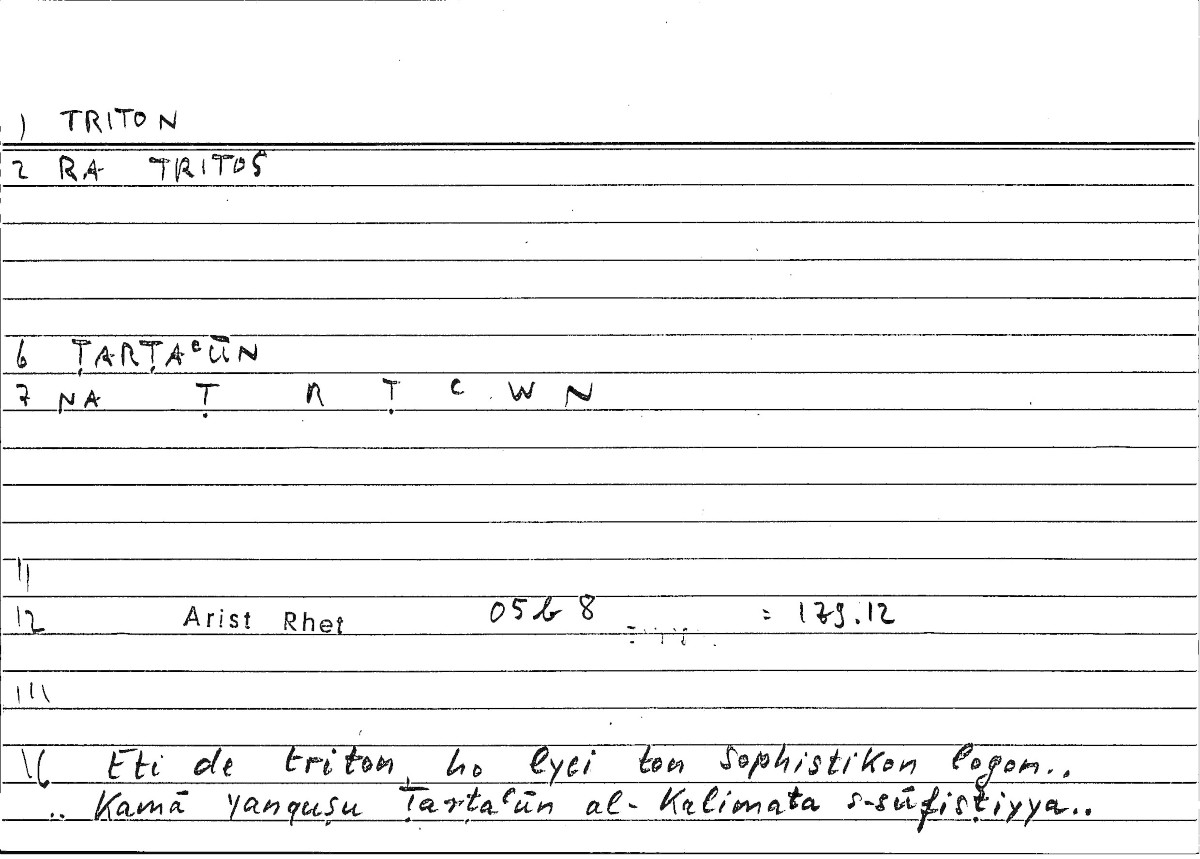 1) TRITON
2 RA TRITOS
6 ṬARṬAᶜŪN
7 NA Ṭ R Ṭ ᶜ W N
11
12 Arist Rhet 05b8 = 179.12
111
16 Eti de triton, ho lyei ton sophistikon logon..
.. Kamā yanquṣu Ṭarṭaᶜūn al-Kalimata s-sūfisṭiyya..